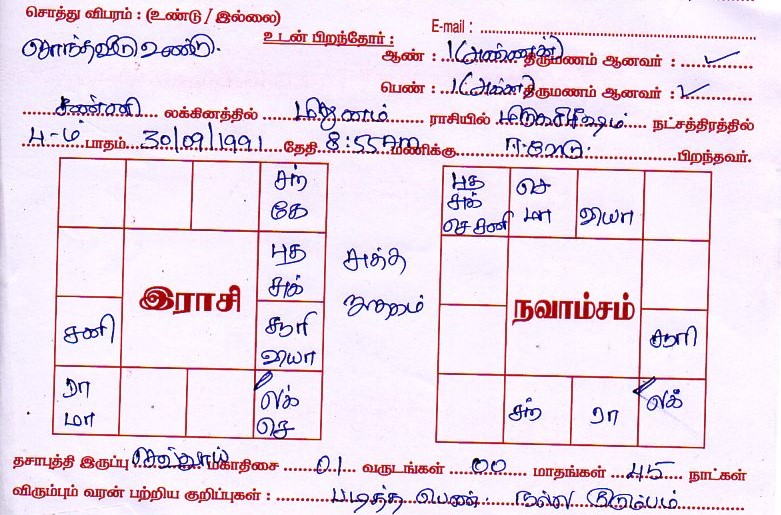 சொத்து விபரம் : (உண்டு / இல்லை)
சொந்தவீடு உண்டு.
E-mail :
உடன் பிறந்தோர் :
ஆண் : 1(அண்ணன்) திருமணம் ஆனவர் : ✓
பெண் : 1(அக்கா) திருமணம் ஆனவர் : ✓
கன்னி லக்கினத்தில் மிதுனம் ராசியில் மிருகசிரீஷம் நட்சத்திரத்தில்
4-ம் பாதம் 30/09/1991 தேதி 8:55AM மணிக்கு பிறந்தவர்.
சந்
கே
புத
சுக்
சனி
சூரி
ரா
மா
லக்
செ
இராசி
புத
சுக்
சனி
செ
மா
சூரி
சந்
ரா
லக்
நவாம்சம்
தசாபுத்தி இருப்பு செவ்வாய் மகாதிசை 01 வருடங்கள் 00 மாதங்கள் 45 நாட்கள்
விரும்பும் வரன் பற்றிய குறிப்புகள் : படித்த பெண் நல்ல குடும்பம்